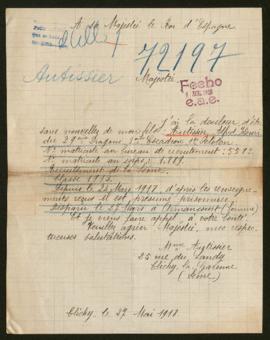 A Sa Majesté le Roi d'Espagne
72197
Autissier
Majesté
Fecho
e.a.e.
J'ai la douleur d'être
sans nouvelles de mon fils Autissier Alfred Henri
du 29ème Dragons 1er Escadron 1er Peloton
N° matricule au bureau de recrutement :
N° matricule au corps :
Recrutement de la Seine
Classe 1913
Depuis le 28 Mars 1918 d'après les renseigne-
ments reçus il est présumé prisonnier.
Disparu le 28 Mars à (Somme)
Et je viens faire appel à votre bonté.
Veuillez agréer Majesté, mes respec-
tueuses salutations.
Mme Autissier
25 rue du Landy
Clichy la Garenne
(Seine)
Clichy, le 27 Mai 1918